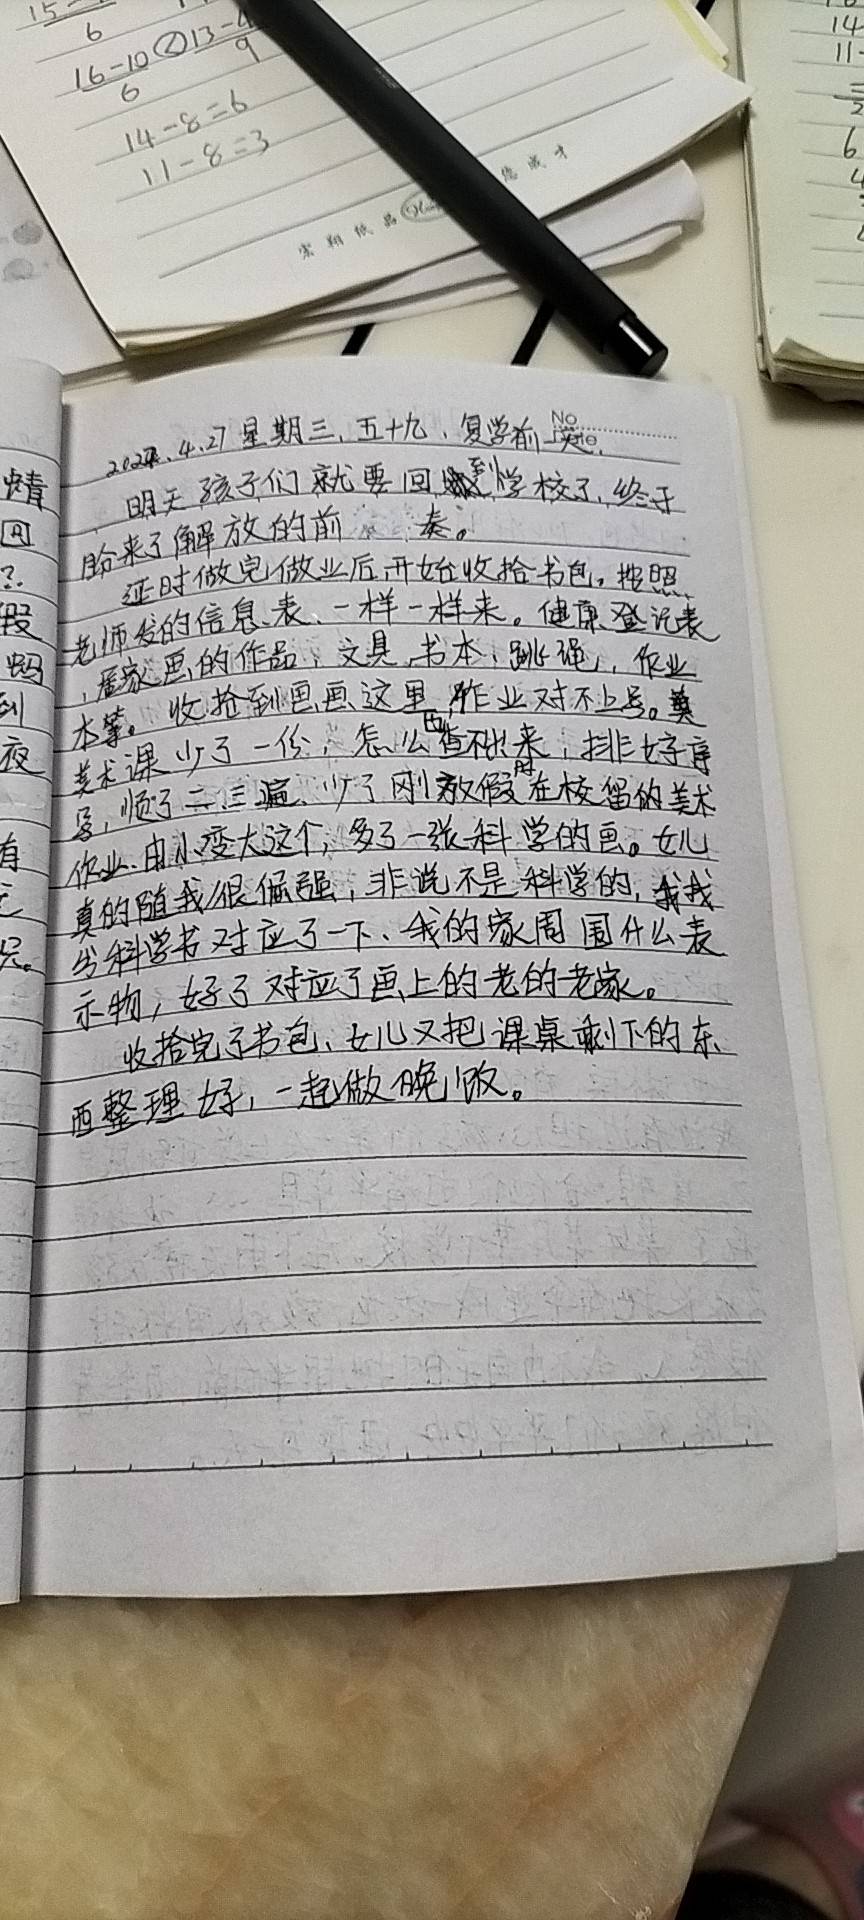 16-10 13-4
6 9
14-8=6
11-8=3
宏翔纸品
4.27 星期三、五十九、复学前一天.
No
明天孩子们就要回到学校了、终于
盼来了解放的前奏。
延时做完做业后,开始收拾书包。按照
老师发的信息表、一样一样来。健康登记表
,居家画的作品,文具、书本,跳绳,作业
本等。收拾到画画这里,作业对不上号。
美术课少了一份,怎么查不出来,排好序
号,顺了二三遍、少了刚放假时在校留的美术
作业、由小变大这个,多了一张科学的画。女儿
真的随我很倔强,非说不是科学的,我找
出科学书对应了一下、我的家周围什么表
示物,好了对应了画上的老的老家。
收拾完了书包、女儿又把课桌剩下的东
西整理好,一起做晚饭。